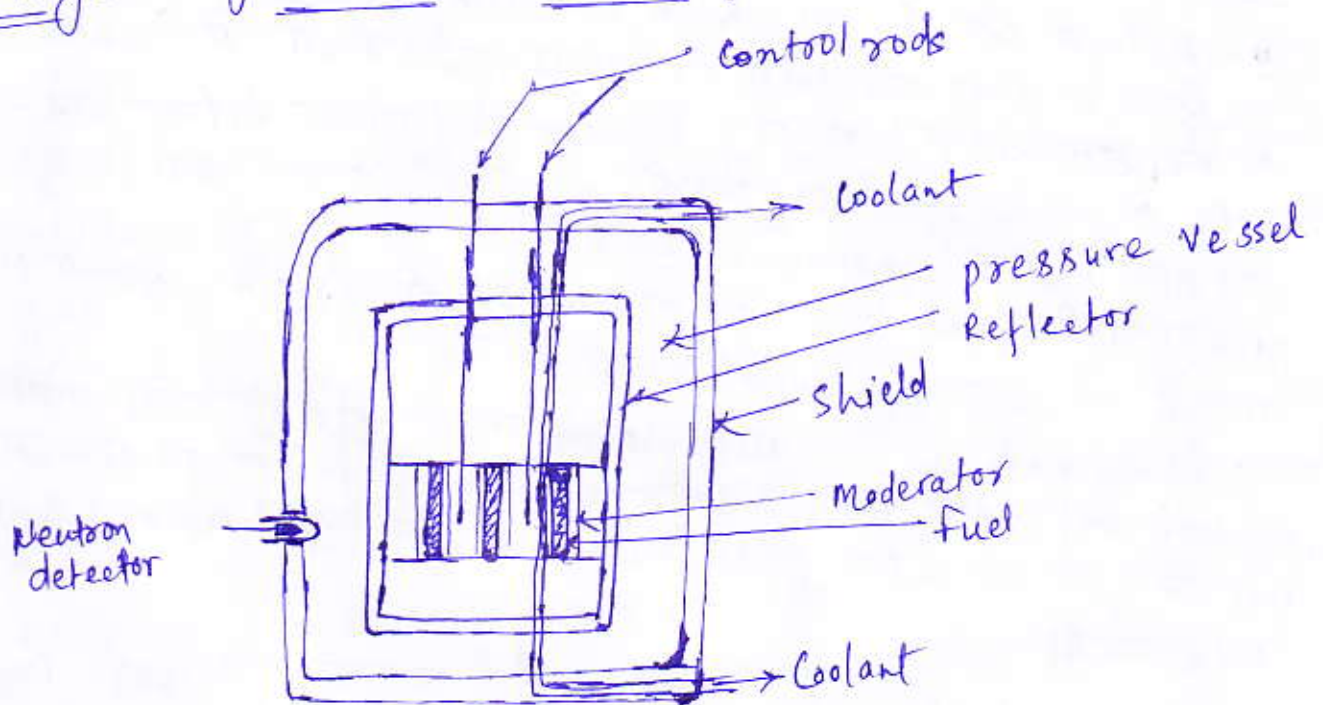 Control rods
Coolant
pressure vessel
Reflector
Shield
Moderator
fuel
Neutron
detector
Coolant